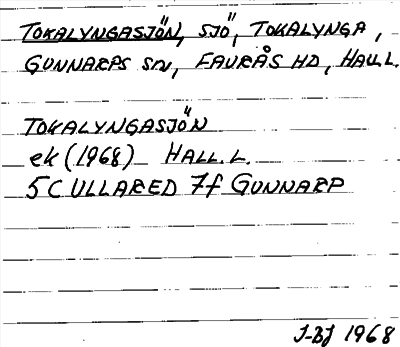 TOKALYNGASJÖN, SJÖ, TOKALYNGA,
GUNNARPS SN, FAURÅS HD, HALL.
TOKALYNGASJÖN
ek (1968) HALL. L.
5C ULLARED 7f GUNNARP
J-BJ 1968